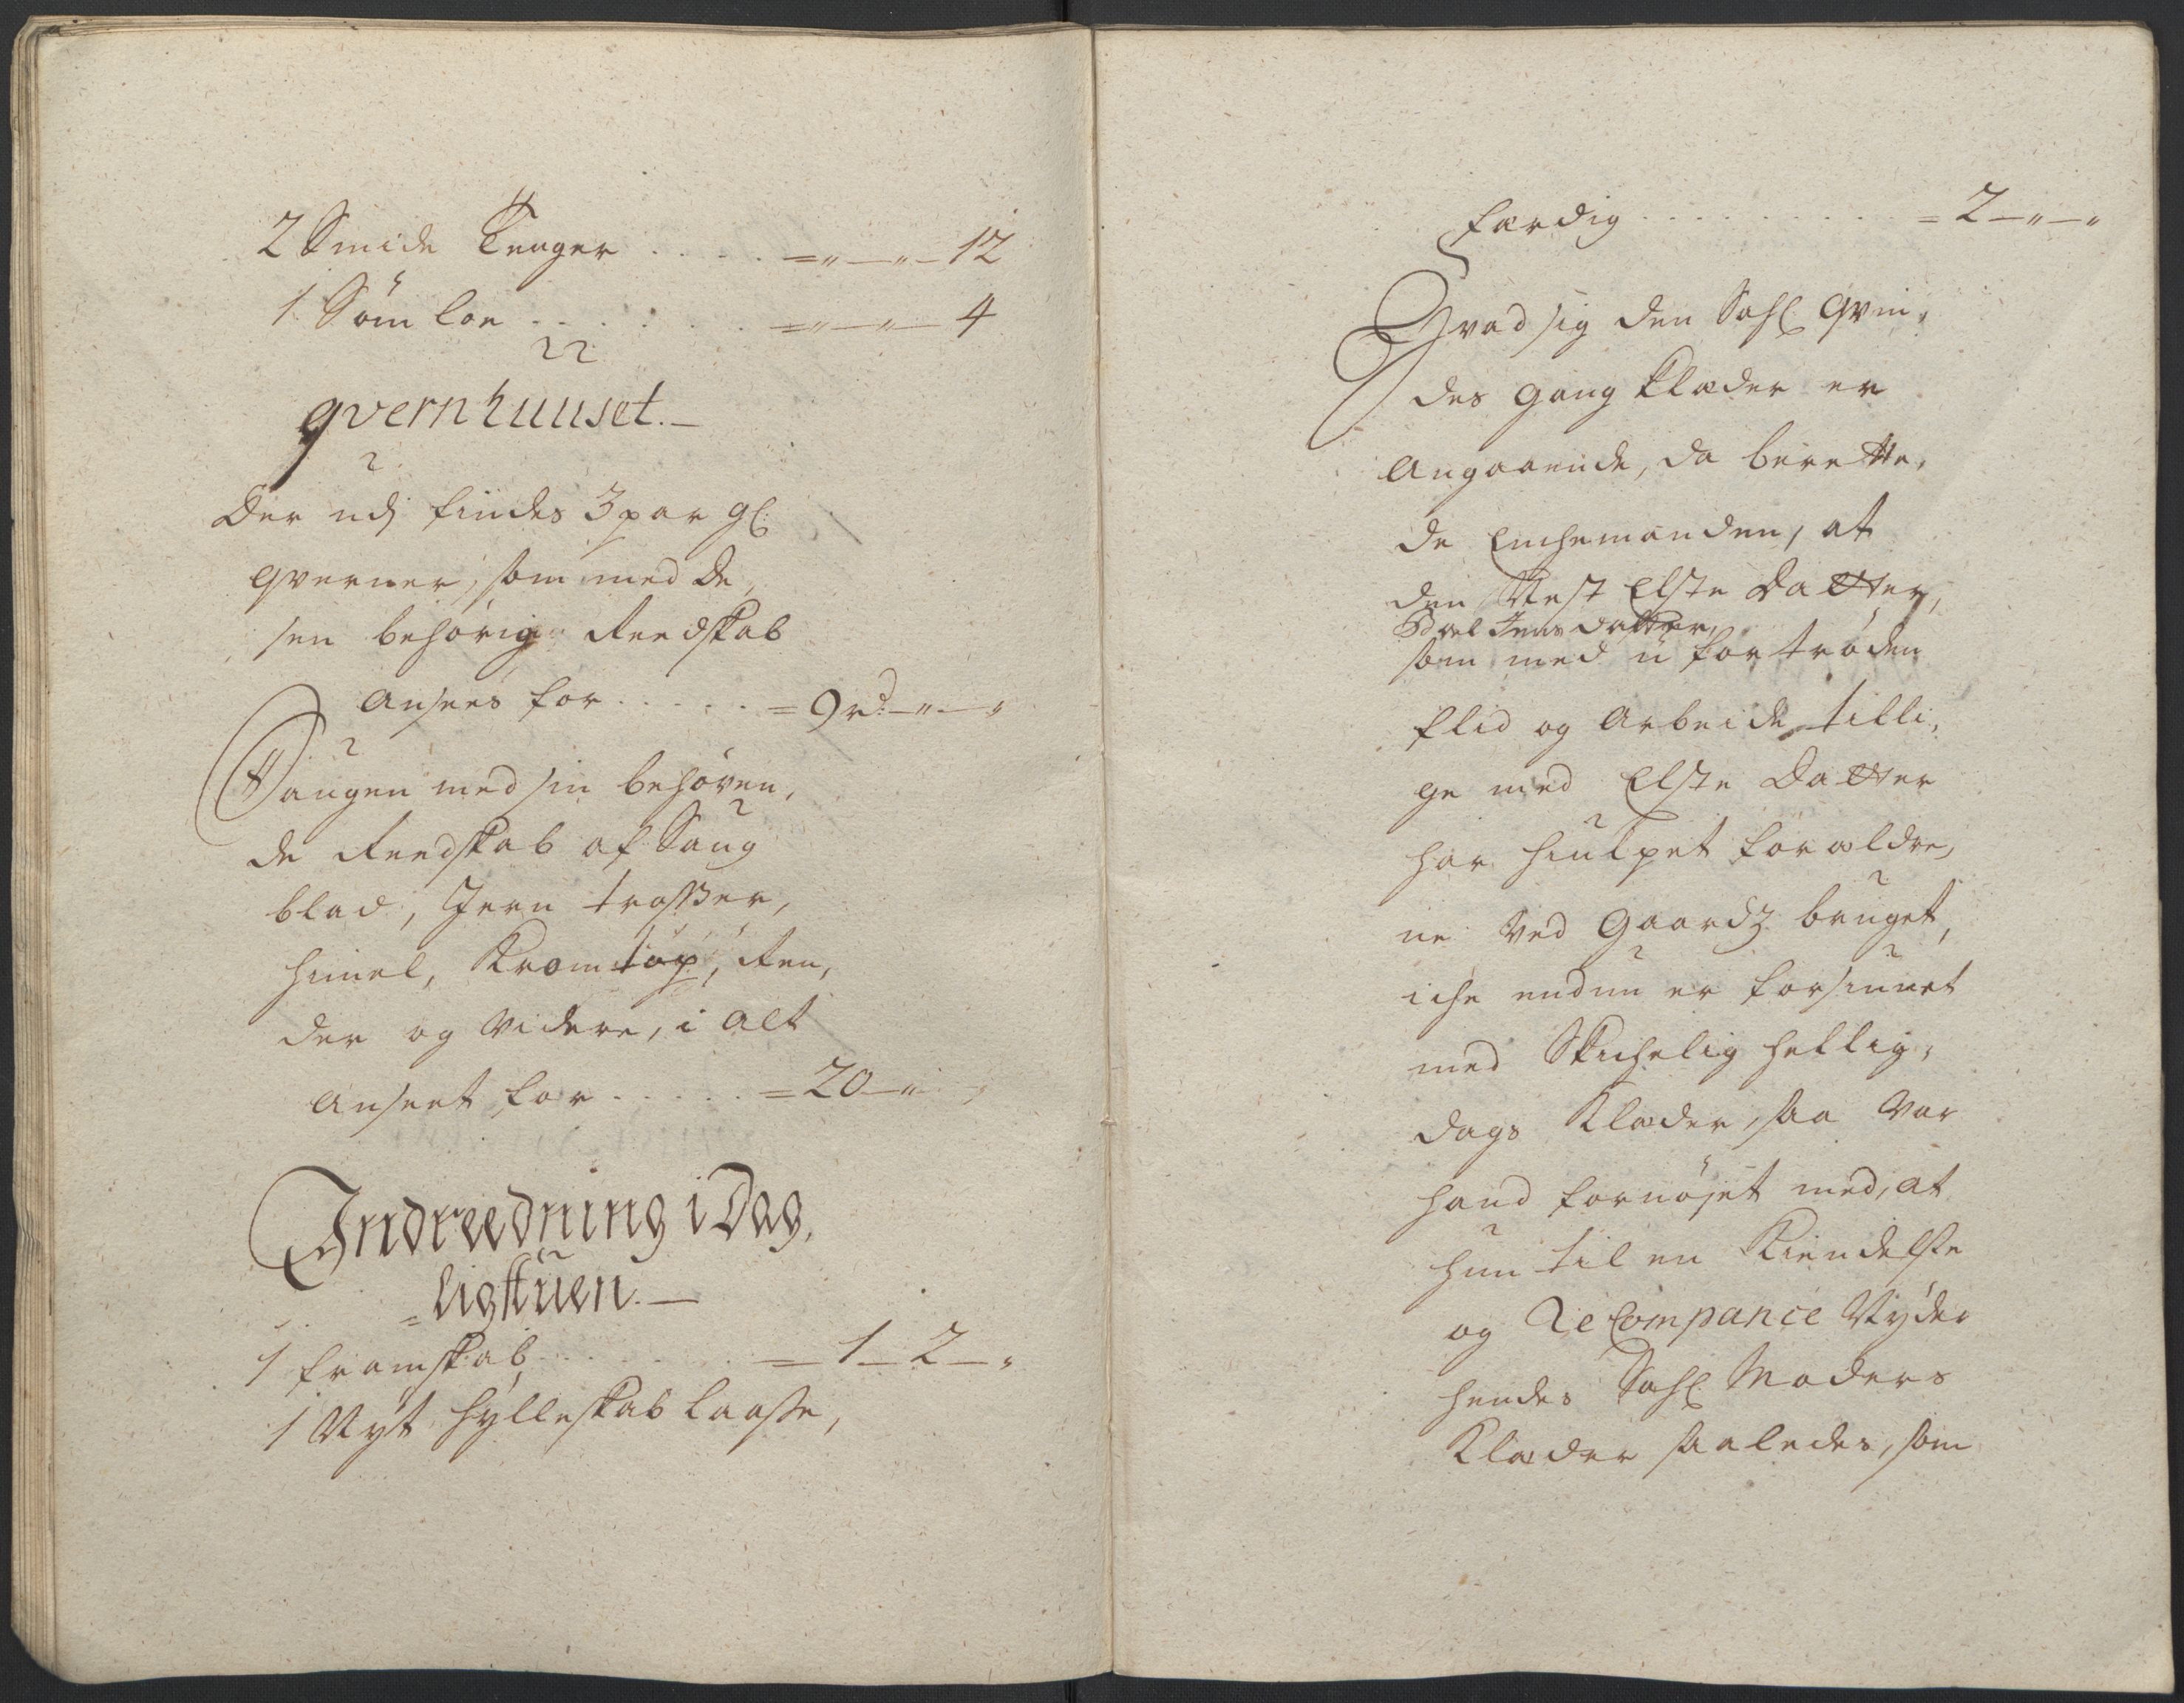 2 Smide Tenger . . . . =„—„—12
1 Søm loe . . . . . . =„—„—4
qvernhuuset.—
Der udj findes 3 par gl:
qverner, som med de,
sen behørig Reedskab
ansees for . . . . . =9rd—„—„
Saugen med sin behøven,
de Reedskab af Saug
blad, Jern trosser,
himel, Kromtap, Ren,
der og videre, i alt
anseet for . . . . . =20—„—„
Indreedning i Dag,
=ligstuen.—
1 framskab . . . . . =1—2—„
1 Nyt hylleskab laasse,
færdig . . . . . . . . =2—„—„
Hvad sig den Sahl: qvin,
des gang klæder er
angaaende, da berette,
de Enchemanden, at
den Nest Elste Datter,
Boel Jens datter,
som med u fortrøden
flid og arbeide tilli,
ge med Elste Datter
har hiulpet forældre,
ne ved Gaardz bruget,
iche endnu er forsiunet
med Skichelig hellig,
dags Klæder, saa var
hand fornøjet med, at
hun til en Kiendelse
og ReCompance Nyder
hendes Sahl: Moders
Klæder saaledes, som